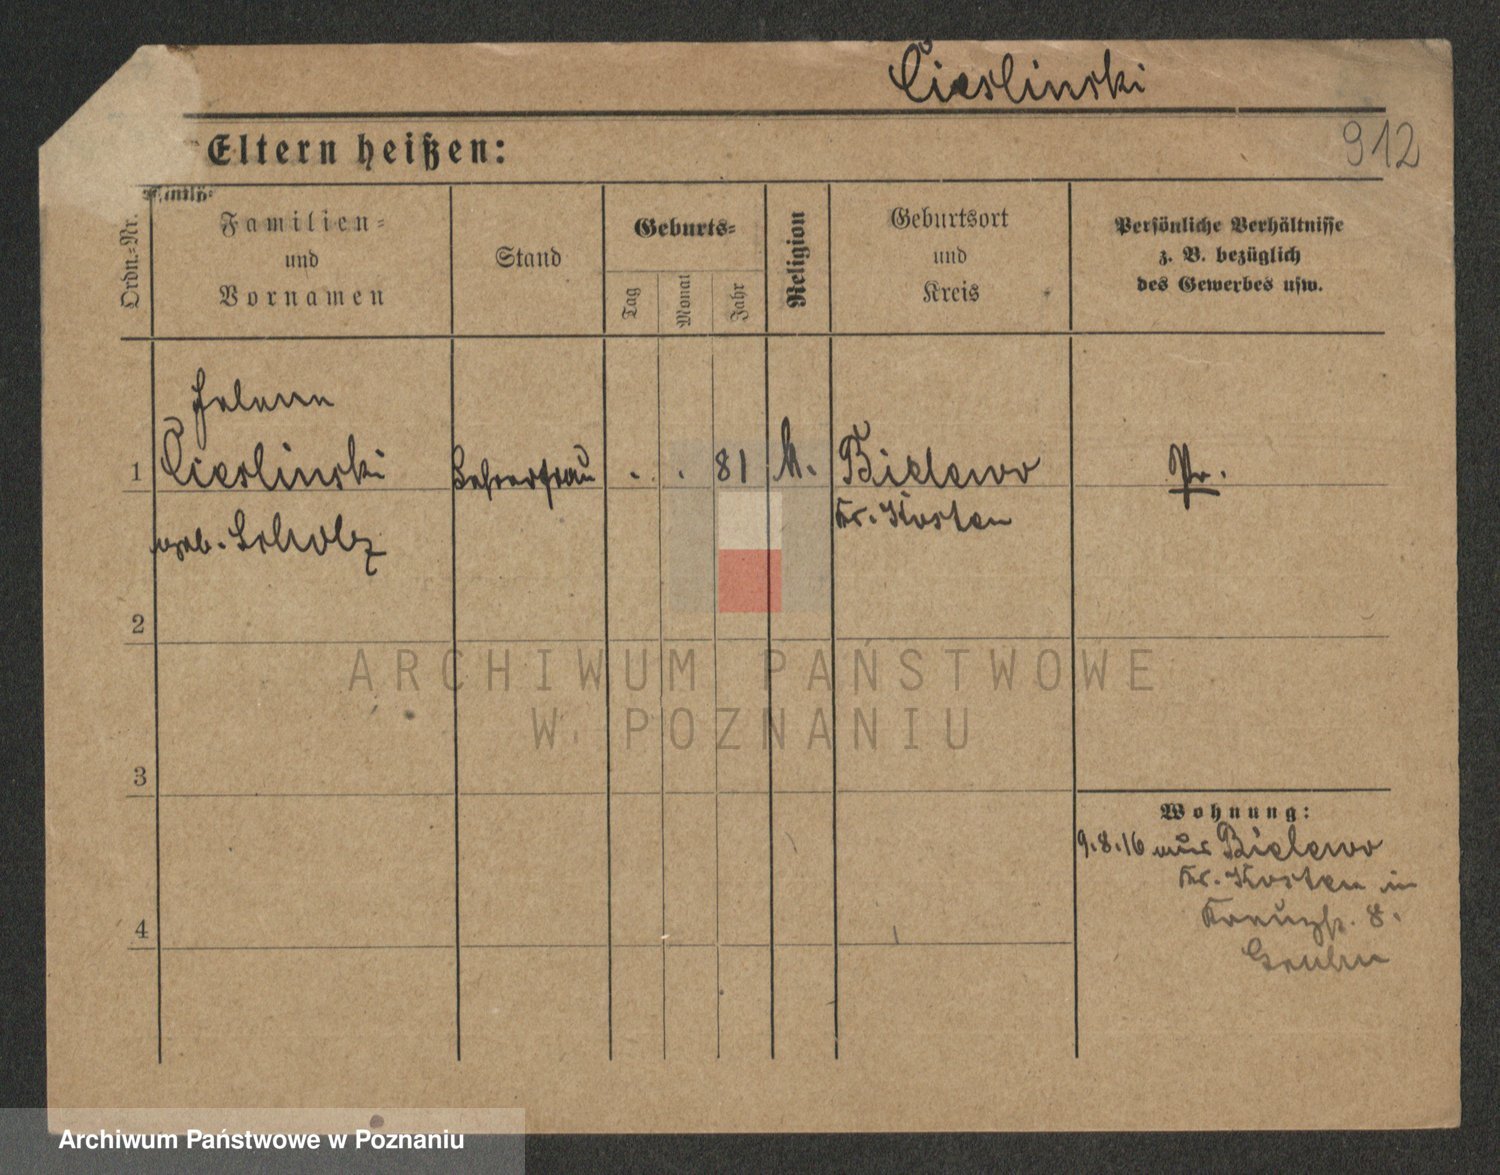 Cieslinski
912
Eltern heißen:
Ordn.-Nr.
Familien-
und
Vornamen
Stand
Geburts-
Tag
Monat
Jahr
Religion
Geburtsort
und
Kreis
Persönliche Verhältnisse
z. B. bezüglich
des Gewerbes usw.
Helene
1 Cieslinski Lehrerfrau . . 81 k. Bielewo Pr.
geb. Scholz Kr. Kosten
2
3
4
Wohnung:
9.8.16 aus Bielewo
Kr. Kosten in
Kreuzstr. 8.
ARCHIWUM PAŃSTWOWE
W POZNANIU
Archiwum Państwowe w Poznaniu